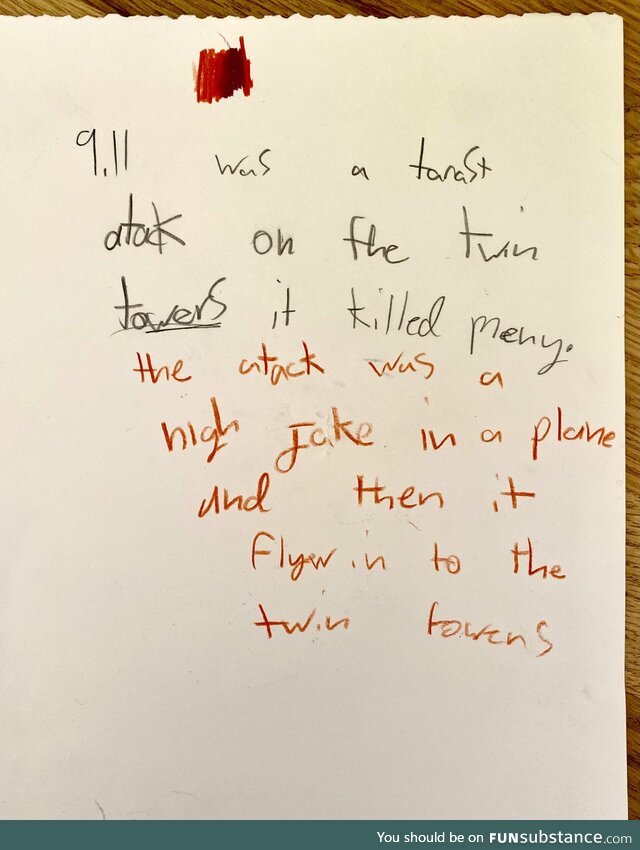 9.11 was a tarast
atack on the twin
towers it killed meny.
the atack was a
high jake in a plane
and then it
flyw in to the
twin towers
You should be on FUNsubstance.com